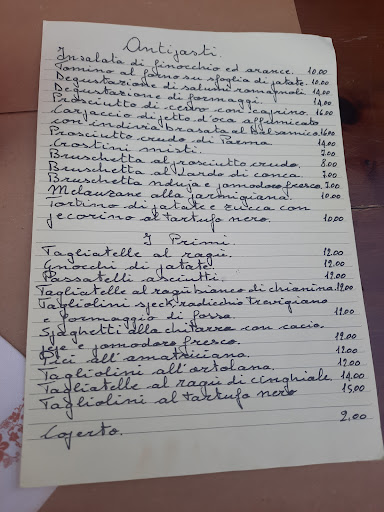 Antipasti.
Insalata di finocchio ed arance. 10.00
Tomino al forno su sfoglia di patate. 10.00
Degustazione di salumi romagnoli 14.00
Degustazione di formaggi. 14.00
Prosciutto di cervo con caprino. 16.00
Carpaccio di petto d'oca affumicato
con indivia brasata al balsamico. 16.00
Prosciutto crudo di Parma 14.00
Crostini misti. 7.00
Bruschetta al prosciutto crudo. 8.00
Bruschetta al lardo di conca. 7.00
Bruschetta nduja e pomodoro fresco. 7.00
Melanzane alla parmigiana. 10.00
Tortino di patate e zucca con
pecorino al tartufo nero. 10.00
I Primi.
Tagliatelle al ragù. 12.00
Gnocchi di patate. 12.00
Passatelli asciutti. 12.00
Tagliatelle al ragù bianco di chianina. 12.00
Tagliolini speck radicchio Trevigiano
e formaggio di fossa
Spaghetti alla chitarra con cacio,
pepe e pomodoro fresco. 12.00
Pici all'amatriciana. 12.00
Tagliolini all'ortolana. 12.00
Tagliatelle al ragù di cinghiale. 14.00
Tagliolini al tartufo nero 15.00
Coperto. 2,00